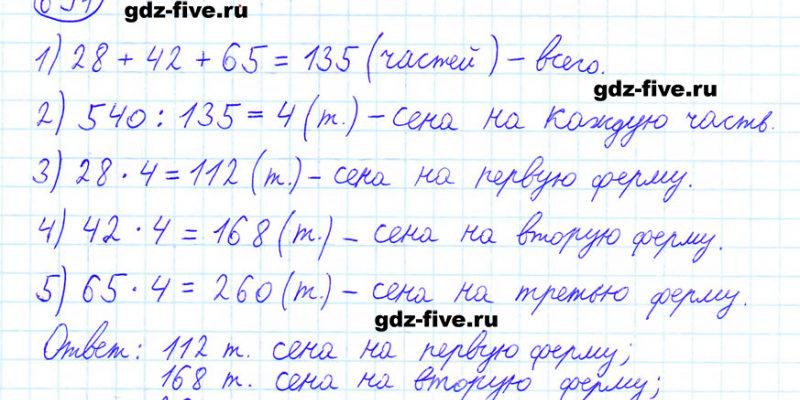 gdz-five.ru
1) 28 + 42 + 65 = 135 (частей) – всего.
gdz-five.ru
2) 540 : 135 = 4 (т.) – сена на каждую часть.
3) 28 · 4 = 112 (т.) – сена на первую ферму.
4) 42 · 4 = 168 (т.) – сена на вторую ферму.
5) 65 · 4 = 260 (т.) – сена на третью ферму.
gdz-five.ru
Ответ: 112 т. сена на первую ферму;
168 т. сена на вторую ферму;